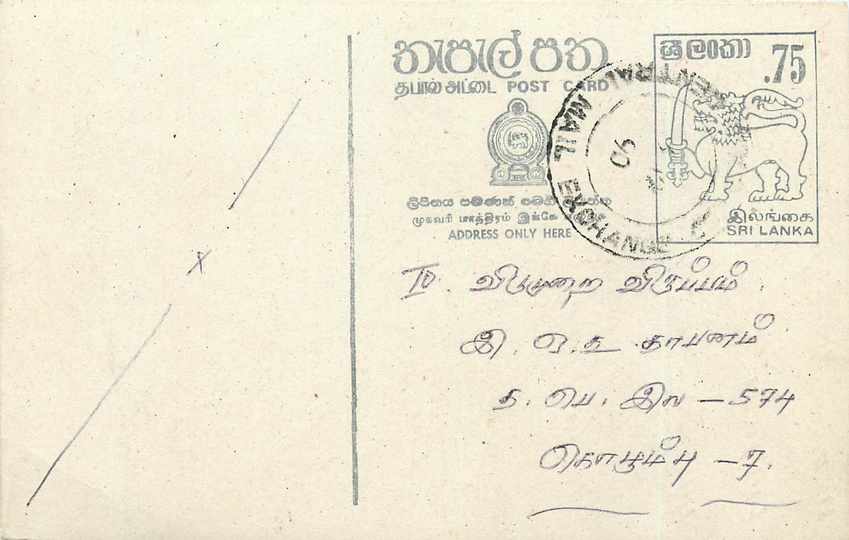 තැපැල් පත
தபால் அட்டை POST CARD
ලිපිනය පමණක්
முகவரி மாத்திரம் இங்கே
ADDRESS ONLY HERE
ශ්‍රී ලංකා
.75
இலங்கை
SRI LANKA
CENTRAL MAIL EXCHANGE
90
X
IV. விடுமுறை விருப்பம்.
இ. ஒ. த. தாபனம்
த. பெ. இல - 574
கொழும்பு - 7.